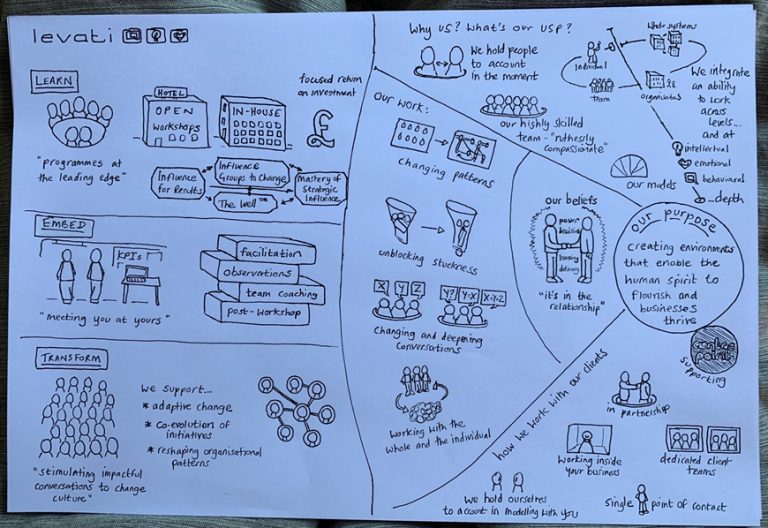 levati
LEARN
"programmes at
the leading edge"
HOTEL
OPEN
WORKSHOPS
IN-HOUSE
focused return
on investment
£
Influence
for Results
Influence
Groups to Change
Mastery of
Strategic
Influence
The Well™
EMBED
KPIs
"meeting you at yours"
facilitation
observations
team coaching
post-workshop
TRANSFORM
"stimulating impactful
conversations to change
culture"
we support...
* adaptive change
* co-evolution of
initiatives
* reshaping organisational
patterns
Why us? What's our USP?
We hold people
to account
in the moment
our highly skilled
team - "ruthlessly
compassionate"
individual
team
whole systems
organisations
We integrate
an ability
to work
across
levels...
and at
intellectual
emotional
behavioural
...depth
our models
Our work:
changing patterns
unblocking stuckness
X Y Z
Y? Y-X X-Y-Z
Changing and deepening
conversations
Working with the
whole and the individual
our beliefs
"it's in the
relationship"
our purpose
creating environments
that enable the
human spirit to
flourish and
businesses
thrive
supporting
how we work with our clients
in partnership
working inside
your business
dedicated client
teams
We hold ourselves
to account in modelling with you
single point of contact